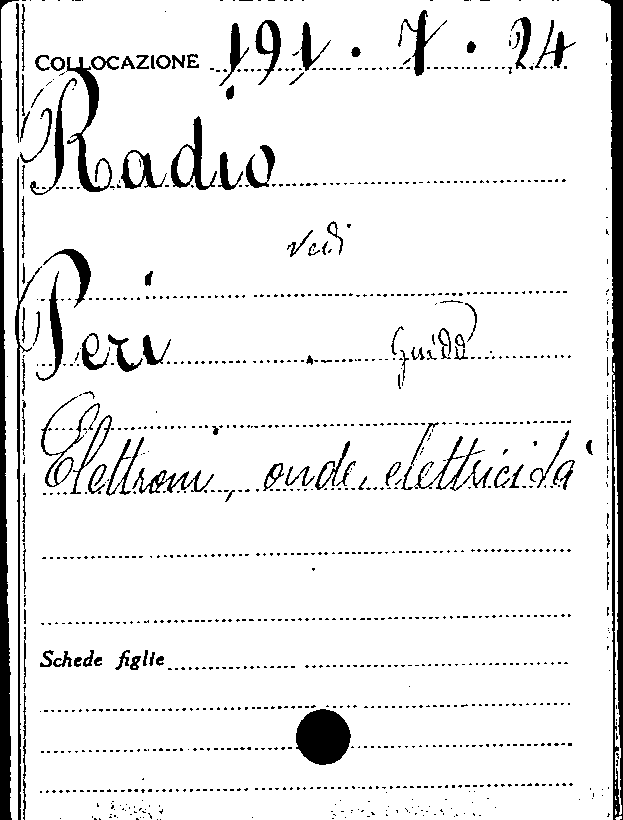 COLLOCAZIONE 191.7.24
Radio
vedi
Peri Guido
Elettroni, onde, elettricità
Schede figlie